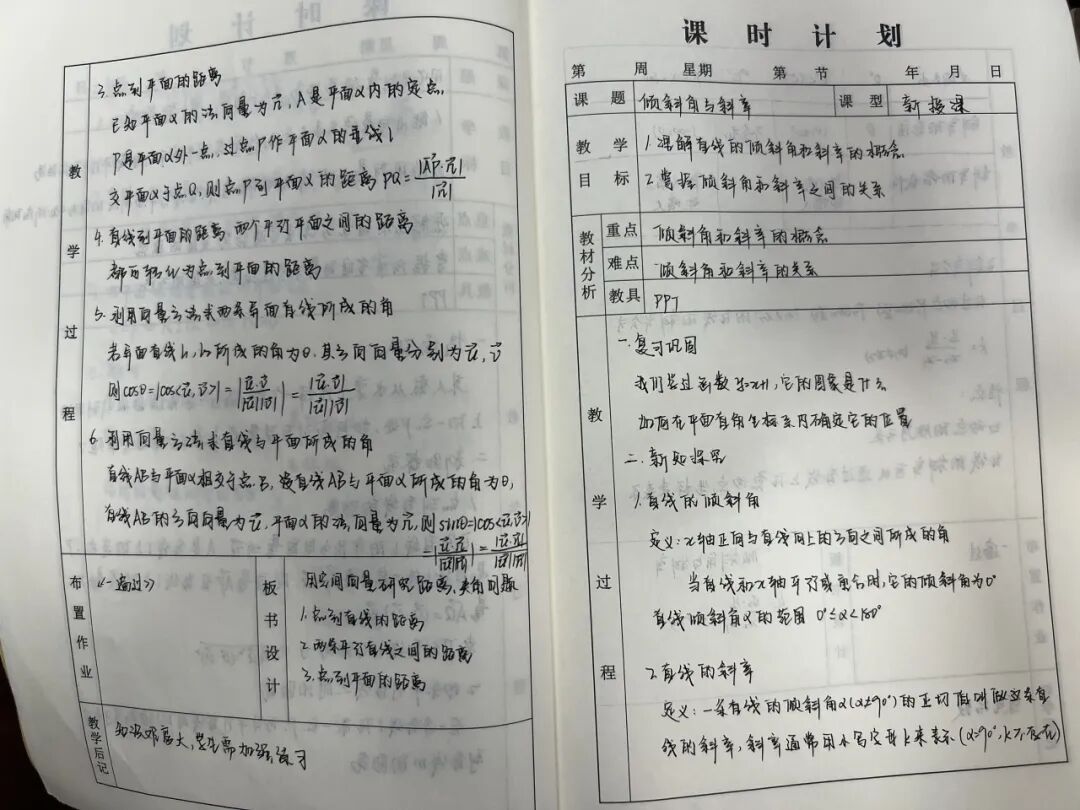 教学过程
3. 点到平面的距离
已知平面α的法向量为n⃗, A是平面α内的定点,
P是平面α外一点, 过点P作平面α的垂线l
交平面α于点Q, 则点P到平面α的距离 PQ=|AP⃗·n⃗|/|n⃗|
4. 直线到平面的距离 两个平行平面之间的距离
都可转化为点到平面的距离
5. 利用向量方法求两条异面直线所成的角
若异面直线l₁, l₂所成的角为θ. 其方向向量分别为u⃗, v⃗
则cosθ=|cos<u⃗,v⃗>|=|u⃗·v⃗/|u⃗||v⃗||=|u⃗·v⃗|/|u⃗||v⃗|
6. 利用向量方法求直线与平面所成的角
直线AB与平面α相交于点B, 设直线AB与平面α所成的角为θ,
直线AB的方向向量为u⃗, 平面α的法向量为n⃗, 则 sinθ=|cos<u⃗,n⃗>|
=|u⃗·n⃗/|u⃗||n⃗||=|u⃗·n⃗|/|u⃗||n⃗|
布置作业
《一遍过》
板书设计
用空间向量研究距离、夹角问题
1. 点到直线的距离
2. 两条平行直线之间的距离
3. 点到平面的距离
教学后记
知识难度大, 学生需加强练习
课 时 计 划
第 周 星期 第 节 年 月 日
课 题 倾斜角与斜率 课 型 新授课
教 学 目 标
1. 理解直线的倾斜角和斜率的概念
2. 掌握倾斜角和斜率之间的关系
教材分析
重点 倾斜角和斜率的概念
难点 倾斜角和斜率的关系
教具 PPT
教学过程
一. 复习巩固
我们学过函数 y=x+1, 它的图象是什么
如何在平面直角坐标系内确定它的位置
二. 新知探究
1. 直线的倾斜角
定义: x轴正向与直线向上的方向之间所成的角
当直线和x轴平行或重合时, 它的倾斜角为0°
直线倾斜角α的范围 0°≤α<180°
2. 直线的斜率
定义: 一条直线的倾斜角α(α≠90°)的正切值叫做这条直
线的斜率, 斜率通常用小写字母k来表示 (α=90°, k不存在)